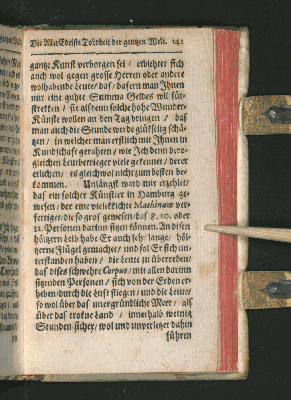 Die AllerEdelste Tohrheit der gantzen Welt. 141
gantze Kunst verborgen sey / erbietet sich
auch wol gegen grosse Herren oder andere
wolhabende Leute / daß / dafern man Ihnen
nur eine guhte Summa Geldes wil für-
strekken / sie alsdenn solche hohe Wunder-
Künste wollen an den Tag bringen / daß
man auch die Stunde werde glükselig schä-
tzen / in welcher man erstlich mit Ihnen in
Kundschaft gerahten / wie Ich denn dero-
gleichen Leutbetrieger viele gekennet / derer
etlichen / es gleichwol nicht zum besten be-
kommen. Unlängst ward mir erzehlet /
daß ein solcher Künstler in Hamburg ge-
wesen / der eine vielekkichte Machinam ver-
fertiget / die so groß gewesen / daß 8. 10. oder
12. Personen darinn sitzen können. An diesen
höltzern Leib habe Er auch sehr lange höl-
tzerne Flügel gemachet / und sol Er sich un-
terstanden haben / die Leute zu überreden /
daß dises schwehre Corpus / mit allen darinn
sitzenden Personen / sich von der Erden er-
heben durch die Luft fliegen / und die Leute /
so wol über das unergründliche Meer / als
über das trokne Land / innerhalb wenig
Stunden sicher / wol und unverletzet dahin
führen